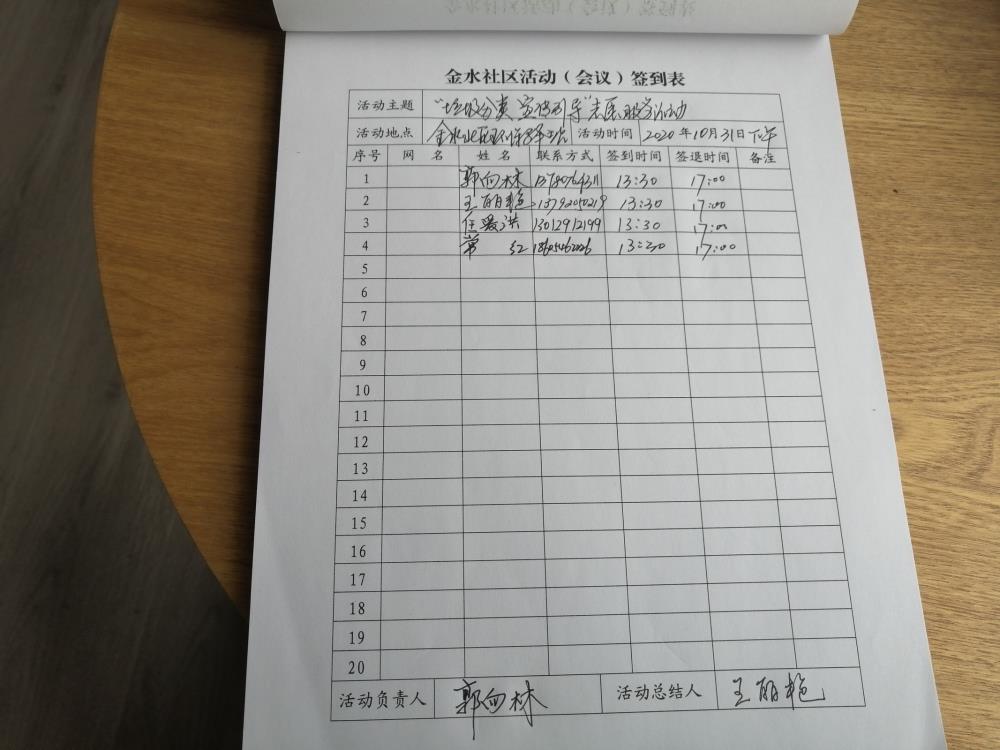 金水社区活动（会议）签到表
活动主题 "垃圾分类 宣传引导"志愿服务活动
活动地点 金水社区环保 活动时间 2020年10月31日下午
序号 网 名 姓 名 联系方式 签到时间 签退时间 备注
1 郭向林 13:30 17:00
2 王丽艳 13792010219 13:30 17:00
3 任爱洪 13012912199 13:30 17:00
4 常 红 13:30 17:00
5
6
7
8
9
10
11
12
13
14
15
16
17
18
19
20
活动负责人 郭向林 活动总结人 王丽艳